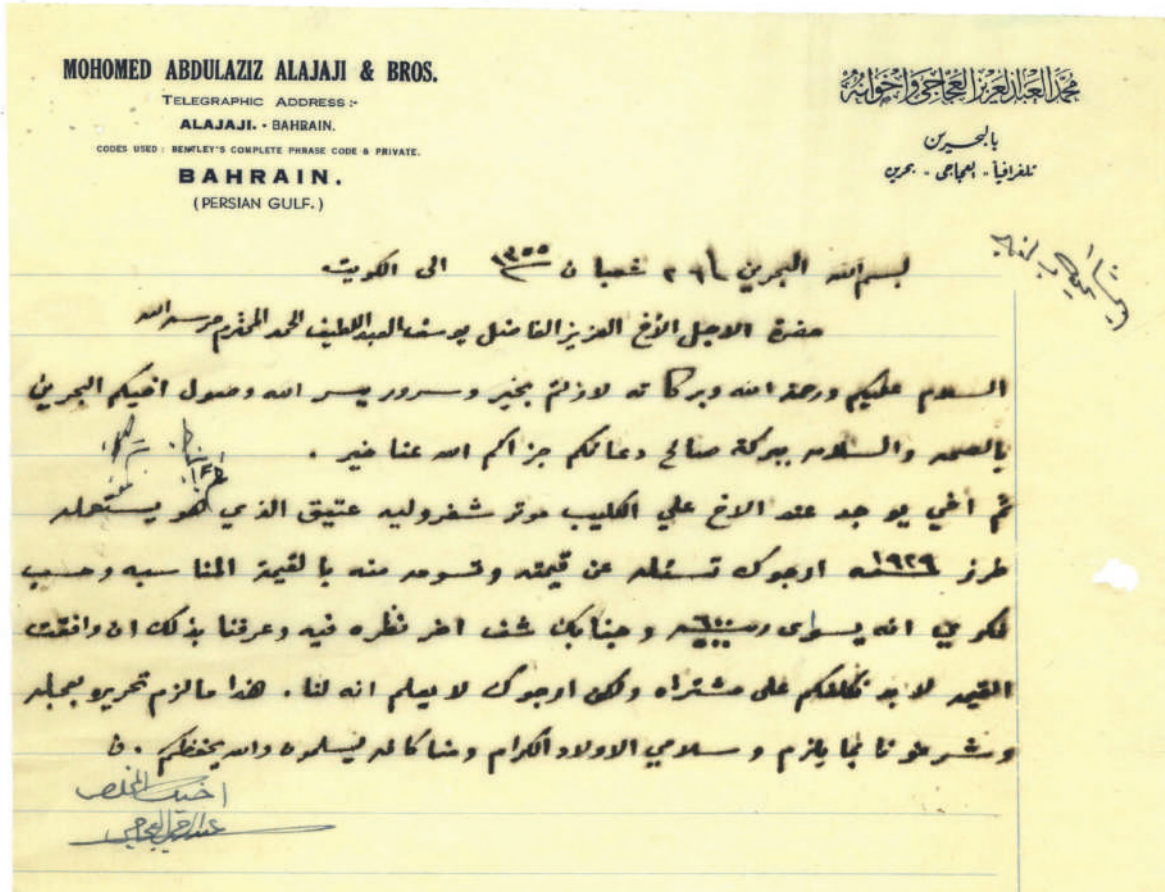 MOHOMED ABDULAZIZ ALAJAJI & BROS.
TELEGRAPHIC ADDRESS :-
ALAJAJI. - BAHRAIN.
CODES USED : BENTLEY'S COMPLETE PHRASE CODE & PRIVATE.
BAHRAIN.
(PERSIAN GULF.)
محمد العبدالعزيز العجاجي واخوانه
بالبحرين
تلغرافياً - العجاجي - بحرين
بسم الله البحرين ٢٦ شعبان ١٣٥٥ الى الكويت
حضرة الاجل الأخ العزيز الفاضل يوسف العبداللطيف الحمد المحترم حرسه الله
السلام عليكم ورحمة الله وبركاته لازلتم بخير وسرور يسر الله وصول اخيكم البحرين
بالصحه والسلامه ببركة صالح دعائكم جزاكم الله عنا خير .
ثم اخي يوجد عند الاخ علي الكليب موتر شفروليه عتيق الذي هو يستعمله
طرز سنه ١٩٢٩ ارجوك تسئله عن قيمته وتسومه منه بالقيمة المناسبه وحسب
فكري انه يسوى وجنابك شف اخر نظره فيه وعرفنا بذلك ان وافقت
القيمه لابد نكلفكم على مشتراه ولكن ارجوك لا يعلم انه لنا . هذا مالزم تحريره بعجله
وشرفونا بما يلزم وسلامي الاولاد الكرام ومنا كافه يسلمون والله يحفظكم . ن
اخيك المخلص
عبدالرحمن العجاجي